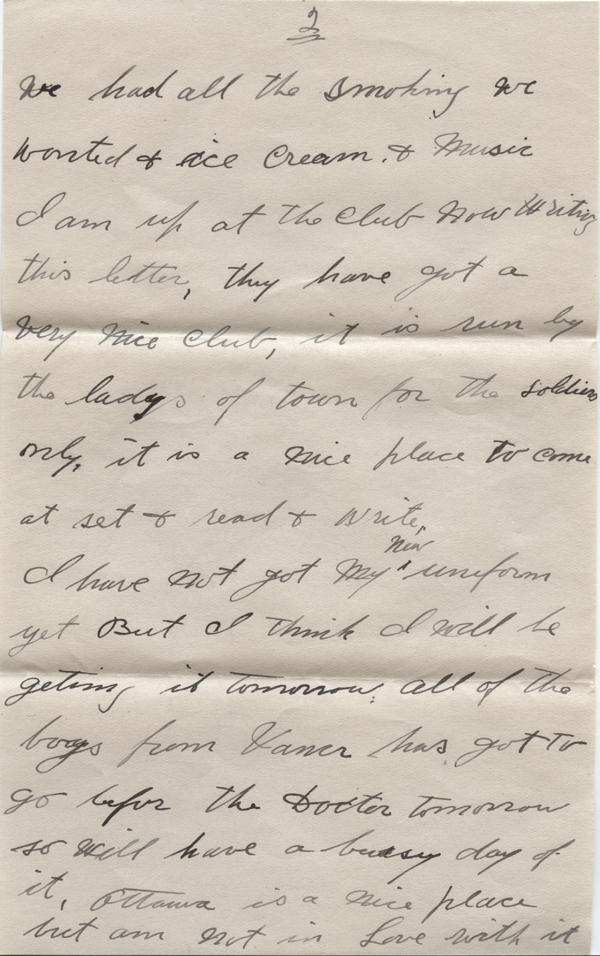 2
We had all the Smoking we
wonted & ice Cream. & Music
I am up at the Club Now Writing
this letter, they have got a
very Nice Club, it is run by
the ladys of town for the soldiers
only, it is a nice place to come
at set & read & write,
New
I have not got My uniform
yet But I think I will be
geting it tomorrow. all of the
boys from Vancr has got to
go befor the Doctor tomorrow
so will have a buesy day of
it, Ottawa is a nice place
but am not in Love with it